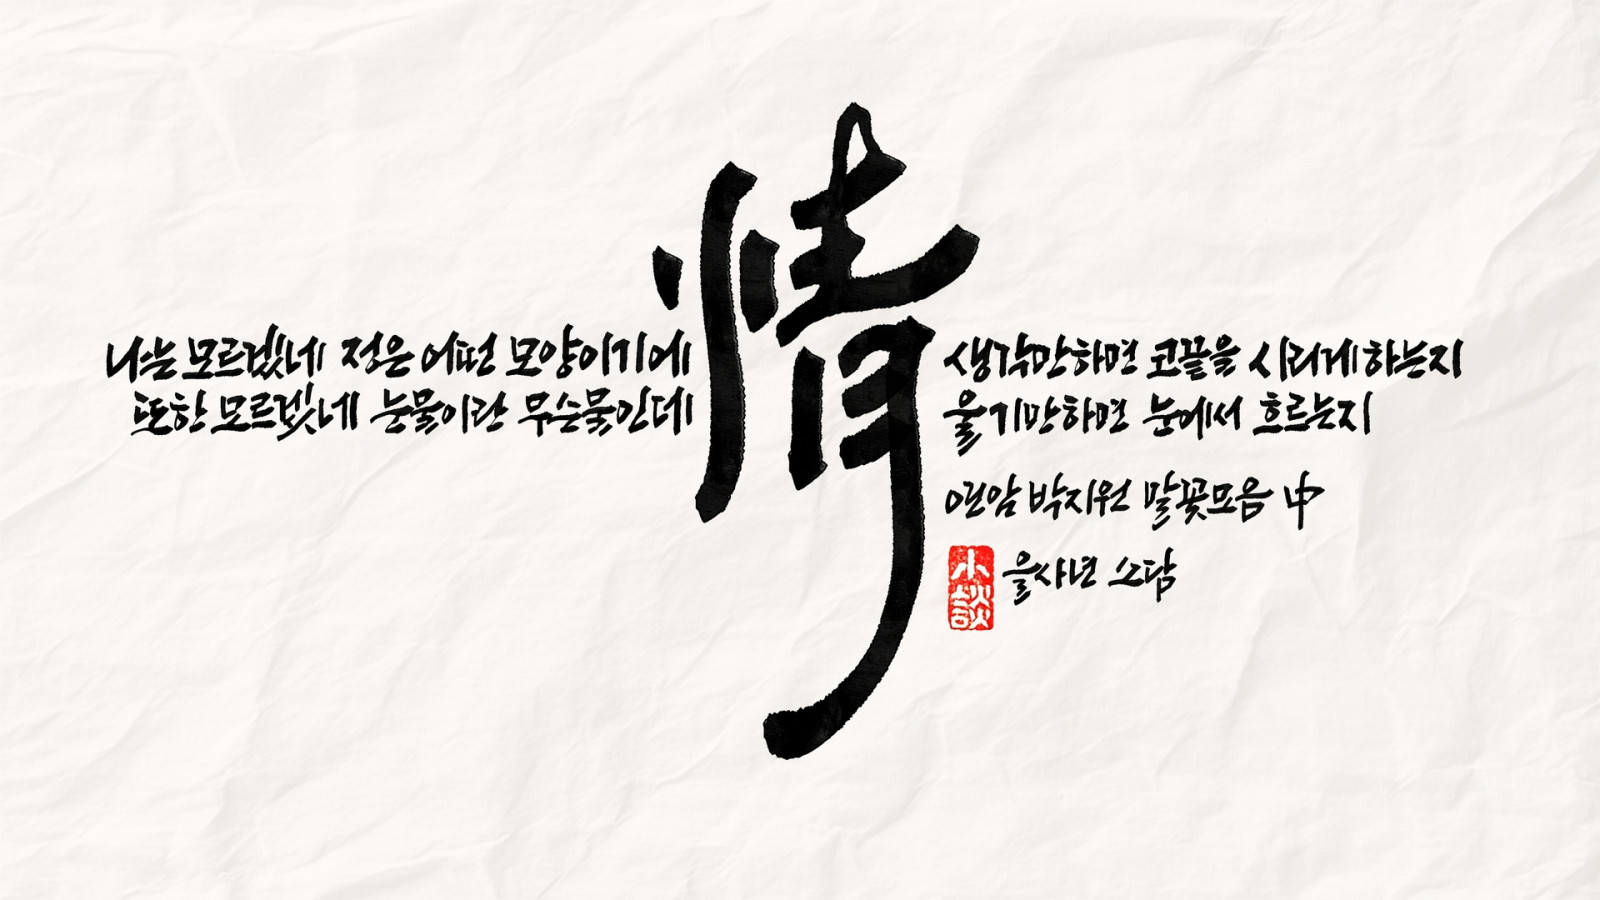 情
나는 모르겠네 정은 어떤 모양이기에
생각만하면 코끝을 시리게하는지
또한 모르겠네 눈물이란 무슨물인데
울기만하면 눈에서 흐르는지
연암 박지원 말꽃모음 中
을사년 소담
小談